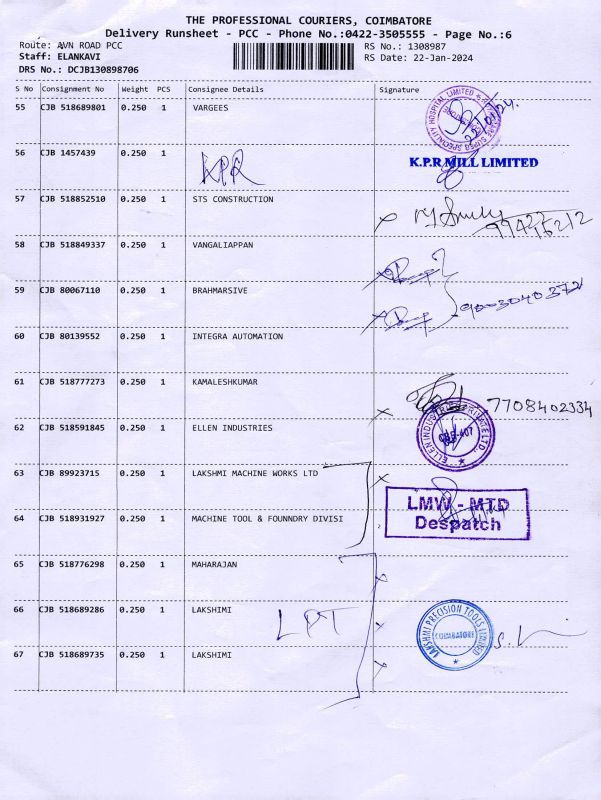 THE PROFESSIONAL COURIERS, COIMBATORE
Delivery Runsheet - PCC - Phone No.:0422-3505555 - Page No.:6
Route: AVN ROAD PCC RS No.: 1308987
Staff: ELANKAVI RS Date: 22-Jan-2024
DRS No.: DCJB130898706
S No Consignment No Weight PCS Consignee Details Signature
55 CJB 518689801 0.250 1 VARGEES
22/01/24.
56 CJB 1457439 0.250 1
KPR
K.P.R MILL LIMITED
57 CJB 518852510 0.250 1 STS CONSTRUCTION
58 CJB 518849337 0.250 1 VANGALIAPPAN
59 CJB 80067110 0.250 1 BRAHMARSIVE
9003040372
60 CJB 80139552 0.250 1 INTEGRA AUTOMATION
61 CJB 518777273 0.250 1 KAMALESHKUMAR
7708402334
62 CJB 518591845 0.250 1 ELLEN INDUSTRIES
ELLEN INDUSTRIES PRIVATE LTD.
63 CJB 89923715 0.250 1 LAKSHMI MACHINE WORKS LTD
LMW - MTD
Despatch
64 CJB 518931927 0.250 1 MACHINE TOOL & FOUNNDRY DIVISI
65 CJB 518776298 0.250 1 MAHARAJAN
66 CJB 518689286 0.250 1 LAKSHIMI
LPT
LAKSHMI PRECISION TOOLS LIMITED
COIMBATORE
67 CJB 518689735 0.250 1 LAKSHIMI